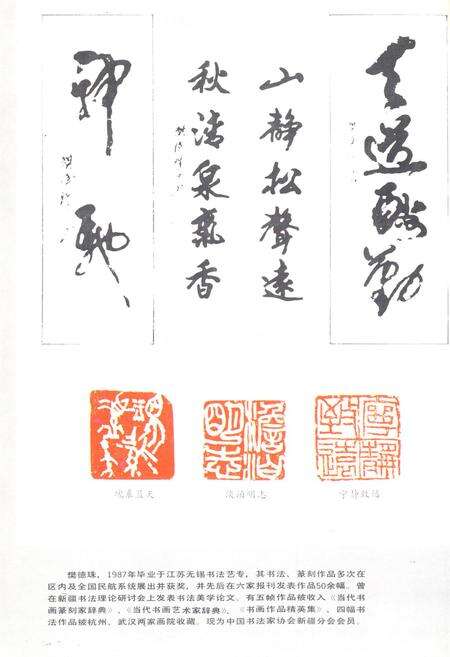 天道酬勤
山静松聲遠
秋清泉氣香
神馳
宁静致远
淡泊明志
樊德珠，1987年毕业于江苏无锡书法艺专，其书法、篆刻作品多次在
区内及全国民航系统展出并获奖，并先后在六家报刊发表作品50余幅。曾
在新疆书法理论研讨会上发表书法美学论文。有五帧作品被收入《当代书
画篆刻家辞典》、《当代书画艺术家辞典》、《书画作品精英集》，四幅书
法作品被杭州、武汉两家画院收藏。现为中国书法家协会新疆分会会员。